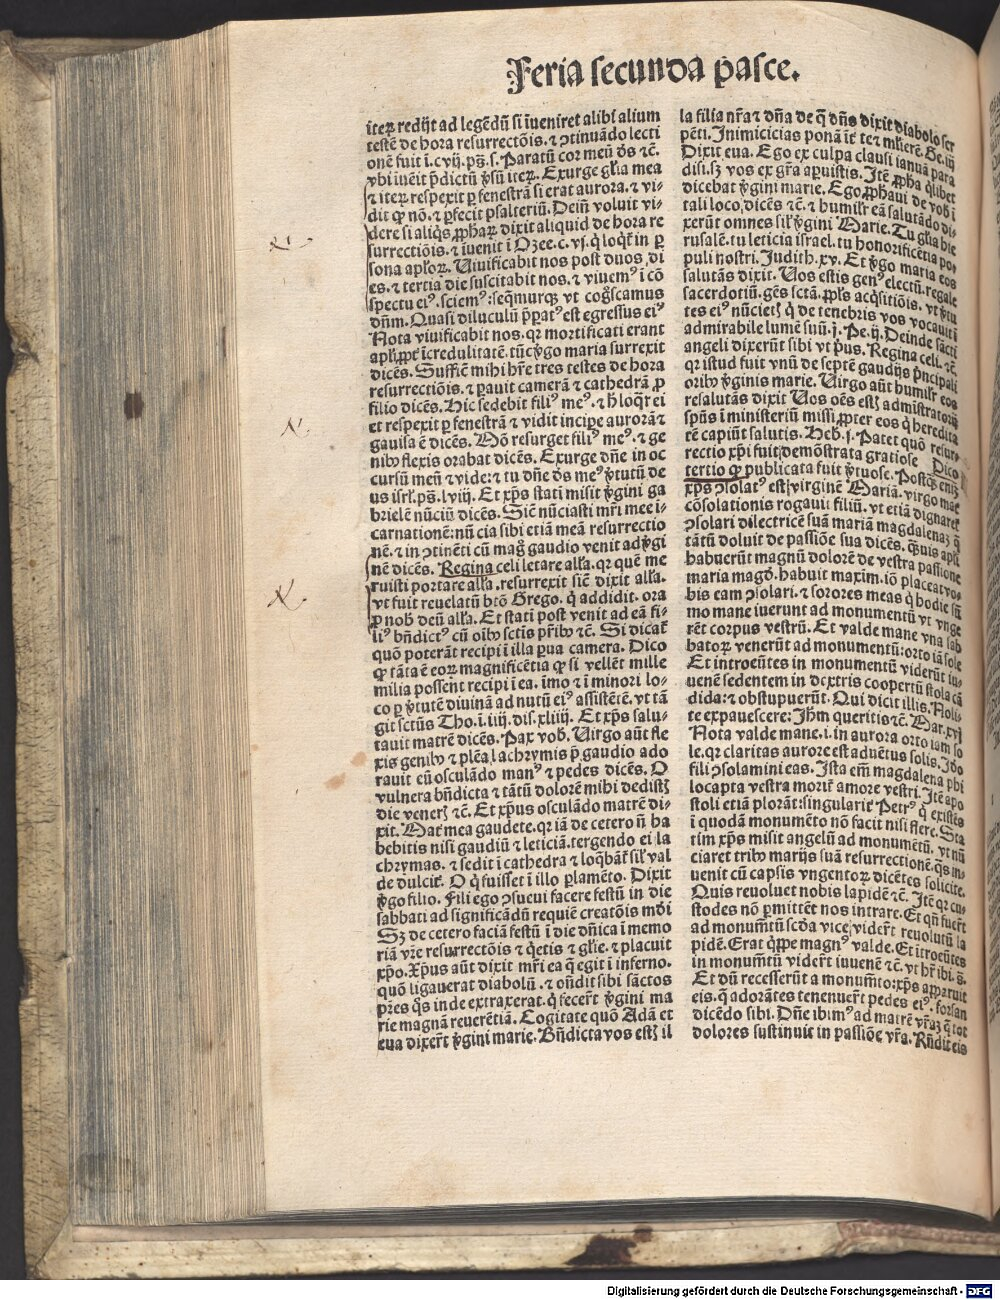 Feria secunda pasce.
iteꝝ redijt ad legēdū si īueniret alibi alium
testē de hora resurrectōis. ⁊ ↄtinuādo lecti
onē fuit ī.c vij. ps̄.s. Paratū cor meū ds̄ ⁊c̄.
vbi īuēit p̄dictū v̓sū iteꝝ. Exurge gl̓ia mea
⁊ iteꝝ respexit ꝑ fenestrā si erat aurora. ⁊ vi-
dit ꝙ nō. ⁊ ꝑfecit psalteriū. Deiñ voluit vi-
dere si aliq̄s ꝓphaꝝ dixit aliquid de hora re
surrectiōis. ⁊ īuenit ī Ozee.c.vj. q̇ loqt̄ in ꝑ
sona apl̓oꝝ. Uiuificabit nos post duos .di
es. ⁊ tertia die suscitabit nos. ⁊ viuemꝰ ī cō
spectu eiꝰ. sciemꝰ: seq̄murqꝫ vt cog̓scamus
dn̄m. Quasi diluculū p̄ꝑatꝰ est egressus eiꝰ
Nota viuificabit nos. qꝛ mortificati erant
apl̓i ꝓpt̓ īcredulitatē. tūc v̓go maria surrexit
dicēs. Suffic̄ mihi hr̄e tres testes de hora
resurrectiōis. ⁊ ꝑauit camerā ⁊ cathedrā ꝓ
filio dicēs. Hic sedebit filiꝰ meꝰ. ⁊ h̓ loqꝛ ei
et respexit ꝑ fenestrā ⁊ vidit incipe aurorā ⁊
gauisa ē dicēs. Mō resurget filiꝰ meꝰ. ⁊ ge
nibꝰ flexis orabat dicēs. Exurge dn̄e in oc
cursū meū ⁊ vide: ⁊ tu dn̄e ds̄ meꝰ v̓tutū de
us isrl̓. ps̄. lviij. Et xp̄s stati misit v̓gini ga
brielē nūciū dicēs. Sic̄ nūciasti mr̄i mee i-
carnationē: nūcia sibi etiā meā resurrectio
nē. ⁊ in ↄtinēti cū mag̓ gaudio venit ad v̓gi
nē dicēs. Regina celi letare all̓a. qꝛ quē me
ruisti portare all̓a. resurrexit sic̄ dixit all̓a.
vt fuit reuelatū btō Grego. q̇ addidit. ora
ꝓ nob̓ deū all̓a. Et stati post venit ad eā fi-
liꝰ bn̄dictꝰ cū oībꝰ sctis pr̄ibꝰ ⁊c̄. Si dicat̓
quō poterāt recipi ī illa ꝑua camera. Dico
ꝙ tāta ē eoꝝ magnificētia ꝙ si vellēt mille
milia possent recipi ī ea. īmo ⁊ ī minori lo-
co ꝑ v̓tutē diuinā ad nutū eiꝰ assistētē. vt tā
git sctūs Tho. ī. iiij. dis. xliiij. Et xp̄s salu-
tauit matrē dicēs. Pax vob̓. Uirgo aūt fle
xis genibꝰ ⁊ plēa lachrymis p̄ gaudio ado
rauit eū osculādo manꝰ ⁊ pedes dicēs. O
vulnera bn̄dicta ⁊ tātū dolorē mihi dedistꝭ
die venerꝭ ⁊c̄. Et xp̄us osculādo matrē di-
xit. Mat̓ mea gaudete. qꝛ iā de cetero n̄ ha
bebitis nisi gaudiū ⁊ leticiā. tergendo ei la
chrymas. ⁊ sedit ī cathedra ⁊ loq̄bāt̓ sil̓ val
de dulcit̓. O q̇ fuisset ī illo ꝑlamēto. Dixit
v̓go filio. Fili ego ↄsueui facere festū in die
sabbati ad significādū requiē creatōis mūdi
Sꝫ de cetero faciā festū ī die dn̄ica ī memo
riā vr̄e resurrectōis ⁊ q̇etis ⁊ gl̓ie. ⁊ placuit
xp̄o. Xp̄us aūt dixit mr̄i ea q̄ egit ī inferno.
quō ligauerat diabolū. ⁊ on̄dit sibi sāctos
pr̄es q̄s inde extraxerat. q̇ fecer̄t v̓gini ma
rie magnā reuerētiā. Cogitate quō Adā et
eua dixer̄t v̓gini marie. Bn̄dicta vos estꝭ il
la filia nr̄a ⁊ dn̄a de q̄ dn̄s dixit diabolo ser
pēti. Inimicicias ponā īt̓ te ⁊ mlierē. Ge. iij
Dixit eua. Ego ex culpa clausi ianuā para
disi. sꝫ vos ex gr̄a apuistis. Itē ꝓpha q̇libet
dicebat v̓gini marie. Ego ꝓphaui de vob̓ ī
tali loco, dicēs ⁊c̄. ⁊ humilr̄ eā salutādo di-
xerūt omnes sil̓ v̓gini Marie. Tu gl̓ia hie
rusalē. tu leticia israel. tu honorificētia po-
puli nostri. Judith. xv. Et v̓go maria eos
salutās dixit. Uos estis genꝰ electū. regale
sacerdotiū. gēs sctā. ꝓpl̓s acq̇sitiōis. vt v̓tu
tes eiꝰ nūcietꝭ q̇ de tenebris vos vocauit ī
admirabile lumē suū. j. Pe. ij. Deinde sācti
angeli dixerūt sibi vt pꝰus. Regina celi. ⁊c̄.
qꝛ istud fuit vnū de septē gaudijs p̄ncipali
oribꝰ v̓ginis marie. Uirgo aūt humilr̄ eos
resalutās dixit Uos oēs estꝭ admistratorij
spūs ī ministeriū missi ꝓpter eos q̇ heredita
rē capiūt salutis. Heb. j. Patet quō resur-
rectio xp̄i fuit demōstrata gratiose Dico
tertio ꝙ publicata fuit v̓tuose. Postqꝫ enī
xp̄s ↄsolatꝰ est virginē Mariā. virgo mat̓
cōsolationis rogauit filiū. vt etiā dignaret̓
ↄsolari dilectricē suā mariā magdalenaꝫ q̄
tātū doluit de passiōe sua dicēs. q̄uis apl̓i
habuerūt magnū dolorē de vestra passione
maria magd̓. habuit maxim. iō placeat vo-
bis eam ↄsolari. ⁊ sorores meas q̄ hodie sū
mo mane iuerunt ad monumētū vt vnge
rēt corpus vestrū. Et valde mane vna sab
batoꝝ venerūt ad monumētū: orto iā sole
Et introeūtes in monumentū viderūt iu-
uenē sedentem in dextris coopertū stola cā
dida: ⁊ obstupuerūt. Qui dicit illis. Noli-
te expauescere: Jhm̄ queritis ⁊c̄. Mar. xvj
Nota valde mane. i. in aurora orto iam so
le. qꝛ claritas aurore est aduētus solis. Ido
fili ↄsolamini eas. Ista em̄ magdalena phi
locapta vestra morit̓ amore vestri. Itē apo
stoli etiā plorāt: singularit̓ Petrꝰ q̇ existēs
ī quodā monumēto nō facit nisi flere. Sta
tim xp̄s misit angelū ad monumētū. vt nū
ciaret tribꝰ marijs suā resurrectionē. q̄s in-
uenit cū capsis vngentoꝝ dicētes solicite.
Quis reuoluet nobis lapidē ⁊c̄. Itē qꝛ cu-
stodes nō ꝑmittēt nos intrare. Et qn̄ fuer̄t
ad monum̄tū scd̄a vice vider̄t reuolutū la
pidē. Erat q̇ppe magnꝰ valde. Et itroeūtes
in monum̄tū vider̄t iuuenē ⁊c̄. vt hr̄ ibi. s̄.
Et dū recesserūt a monum̄to: xp̄s apparuit
eis. q̄ adorātes tenuer̄t pedes eiꝰ. forsan
dicēdo sibi. Dn̄e ibimꝰ ad matrē vr̄aꝫ q̄ tot
dolores sustinuit in passiōe vr̄a. Rn̄dit eis
Digitalisierung gefördert durch die Deutsche Forschungsgemeinschaft - DFG